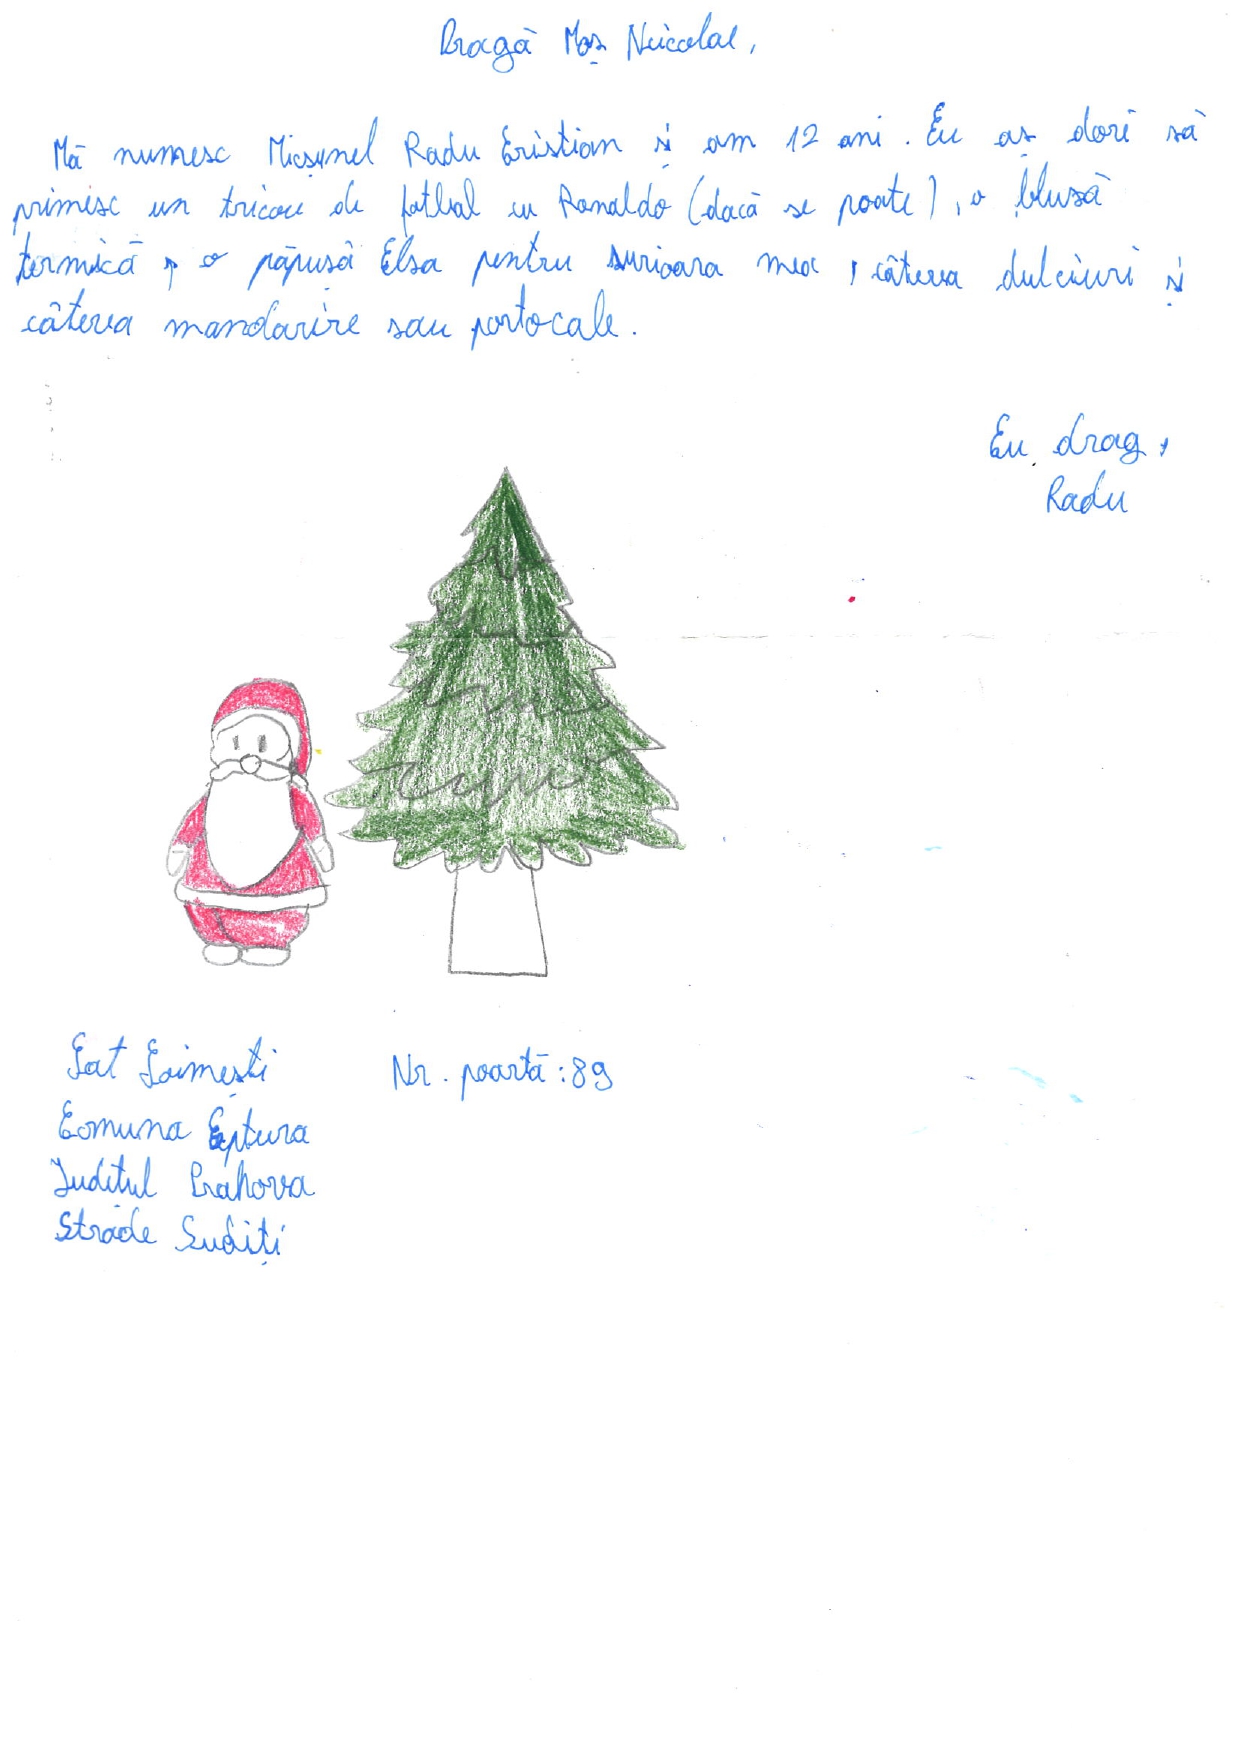 Dragă Moș Nicolae,
Mă numesc Micșunel Radu Cristian și am 12 ani. Eu aș dori să
primesc un tricou de fotbal cu Ronaldo (dacă se poate), o blusă
termică, o păpușă Elsa pentru surioara mea, câteva dulciuri și
câteva mandarine sau portocale.
Cu drag,
Radu
Sat Loimești Nr. poartă: 89
Comuna Ceptura
Județul Prahova
Strade Sudiți